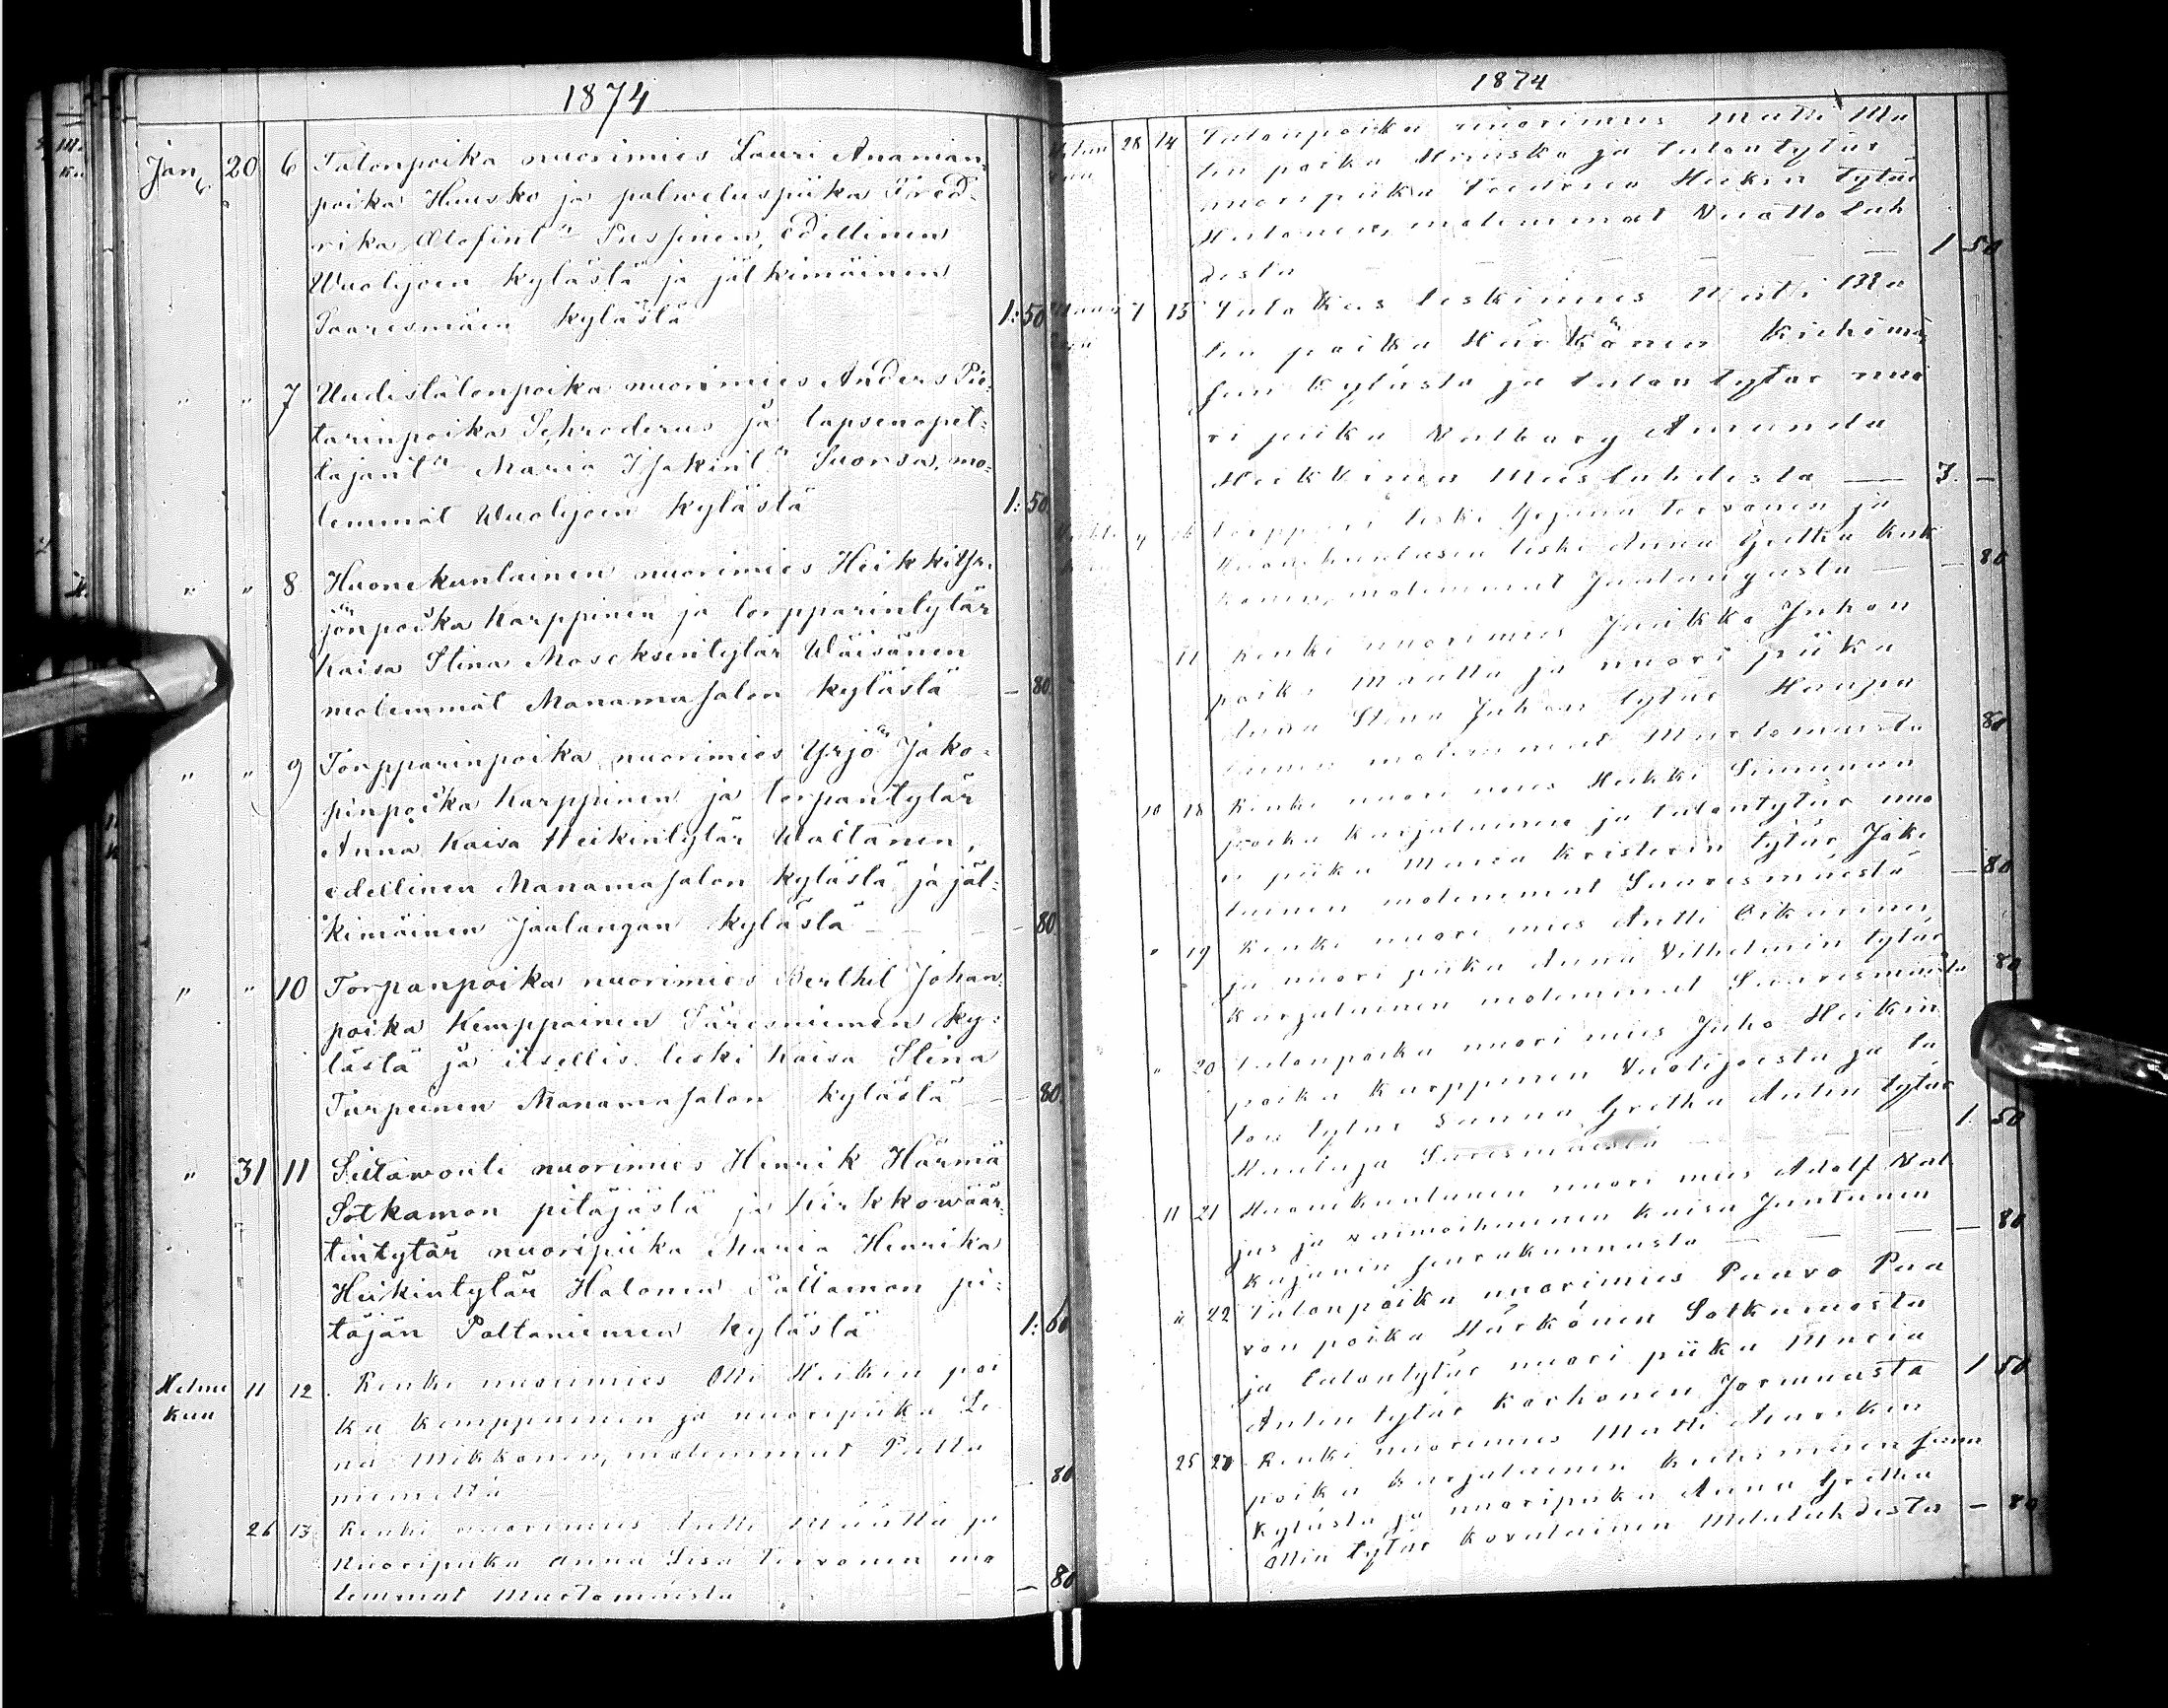 1874
Jan. 20 6 Talonpoika nuorimies Lauri Ananian-
poika Huusko ja palweluspiika Fred-
rika Olofint:r Pussinen, edellinen
Wuolijoen kylästä ja jälkimäinen
Saaresmäen kylästä 1:50
" " 7 Uudistalonpoika nuorimies Anders Pie-
tarinpoika Schroderus ja lapsenopet-
tajant:r Maria Isakint:r Suorsa, mo-
lemmat Wuolijoen kylästä 1:50
" " 8 Huonekuntainen nuorimies Heikki Yr-
jönpoika Karppinen ja torpparintytär
Kaisa Stina Moseksentytär Wäisänen
molemmat Manamasalon kylästä — 80
" " 9 Torpparinpoika nuorimies Yrjö Jako-
pinpoika Karppinen ja torpantytär
Anna Kaisa Heikintytär Waltanen,
edellinen Manamasalon kylästä ja jäl-
kimäinen Jaalangan kylästä — 80
" " 10 Torpanpoika nuorimies Berthil Johan-
poika Kemppainen Säresniemen ky-
lästä ja itsellis. leski Kaisa Stina
Turpeinen Manamasalon kylästä — 80
" 31 11 Siltawouti nuorimies Henrik Härmä
Sotkamon pitäjästä ja kirkkowäär-
tintytär nuoripiika Maria Henrika
Heikintytär Halonen Paltamon pi-
täjän Paltaniemen kylästä 1:60
Helmi 11 12 Renki nuorimies Olli Heikin poi
kuu ka Kemppainen ja nuoripiika Le
na Mikkonen, molemmat Palta
niemeltä — 80
26 13 Renki nuorimies Antti Määttä ja
Nuoripiika Anna Lisa Tervonen mo
lemmat Mustomäesta — 80
1874
28 14 Talonpoika nuorimies Matti Ma
tin poika Huusko ja talontytär
nuoripiika Heikin tytär
Hulonen, molemmat Vuottolah
desta 1 50
7 15 Talokas leskimies Matti Ma
tin poika Härkönen Kiehimä
suu kylästa ja talon tytär nuo
ri piika Valborg Amanda
Heikkinen Mieslahdesta — 3. —
leski Tervonen ja
Huonekuntasen leski Anna Gretha Kork
konen, molemmat Jaalangasta — — 80
11 Renki nuorimies Juhan
poika Määttä ja nuori piika
Anna Stina Juhan tytär Haapa
lainen molemmat Mustomaesta 80
10 18 Renki nuori mies Heikki Simunan
poika Karjalainen ja talontytär nuo
ri piika Maria Kristerin tytär Jäke
läinen molemmat Saaresmäesta — 80
" 19 Renki nuori mies Antti Oikarinen
ja nuori piika Anna Vilhelmin tytär
Karjalainen molemmat Saaresmäesta 80
" 20 Talonpoika nuori mies Juho Heikin
poika Karppinen Vuolijoesta ja ta
lon tytär Sanna Gretha Antin tytär
Säresmäestä 1. 50
11 21 Huonekuntanen nuori mies Adolf Val
jus ja vaimoihminen Kaisa Juntunen
Kajanin seurakunnasta — — 80
" 22 Talonpoika nuorimies Paavo Paa
von poika Härkönen Sotkamosta
ja talontytär nuori piika Maria
Antin tytär Korhonen Jormuasta 1 50
25 23 Renki nuorimies Matti
poika Karjalainen Kiehimäen suun
kylästa ja nuoripiika Anna Gretha
Ollin tytär Kovalainen Melalahdesta — 80